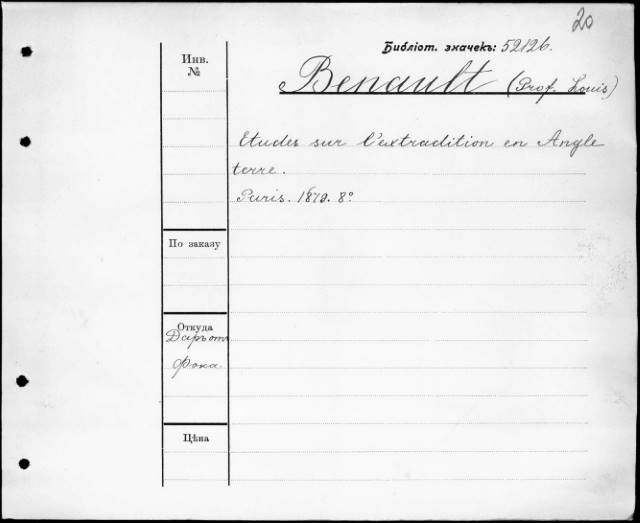 20
Библіот. значекъ: 52126.
Инв.
№
Benault (Prof. Louis)
Etudes sur l'extradition en Angle
terre.
Paris. 1879. 8°.
По заказу
Откуда
Даръ отъ
Фока.
Цѣна